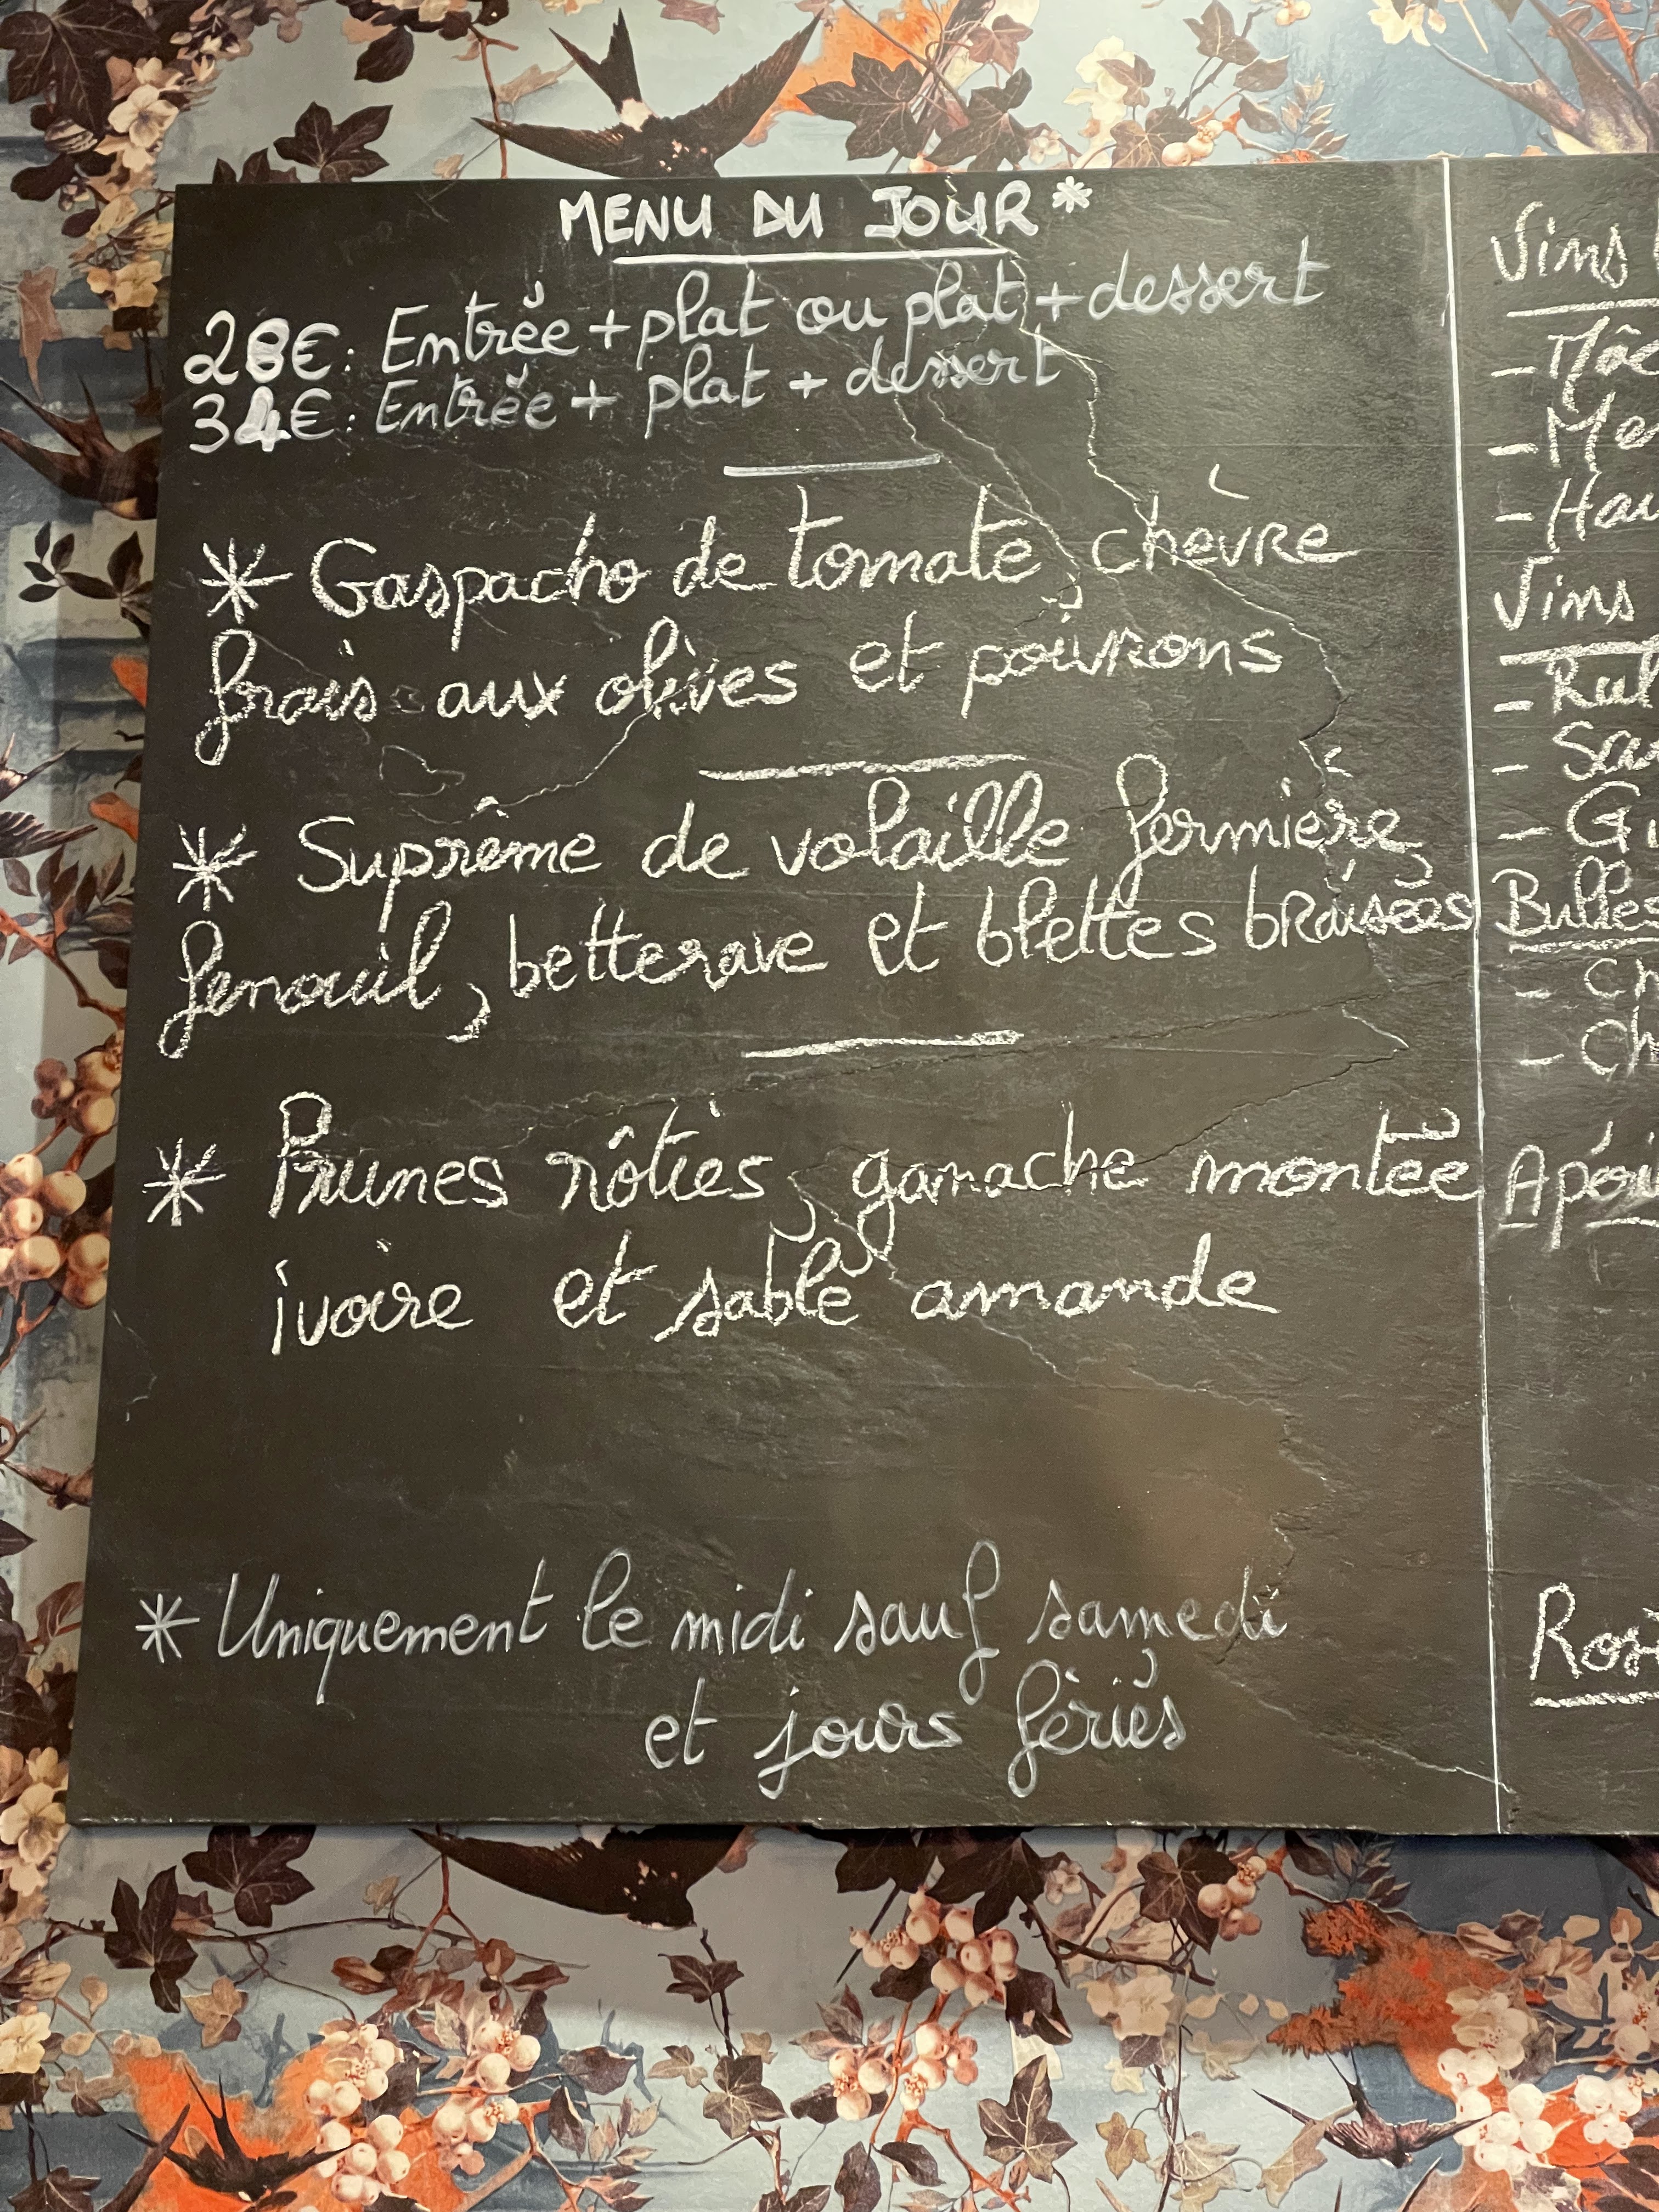 MENU DU JOUR*
28€: Entrée + plat ou plat + dessert
34€: Entrée + plat + dessert
* Gaspacho de tomate, chèvre
frais aux olives et poivrons
* Suprême de volaille fermière,
fenouil, betterave et blettes braisées
* Prunes rôties, ganache montée
ivoire et sablé amande
* Uniquement le midi sauf samedi
et jours fériés
Vins
- Mâc
- Me
- Hau
Vins
- Rul
- San
- Gi
Bulles
- Ch
- Ch
Apéri
Rosé